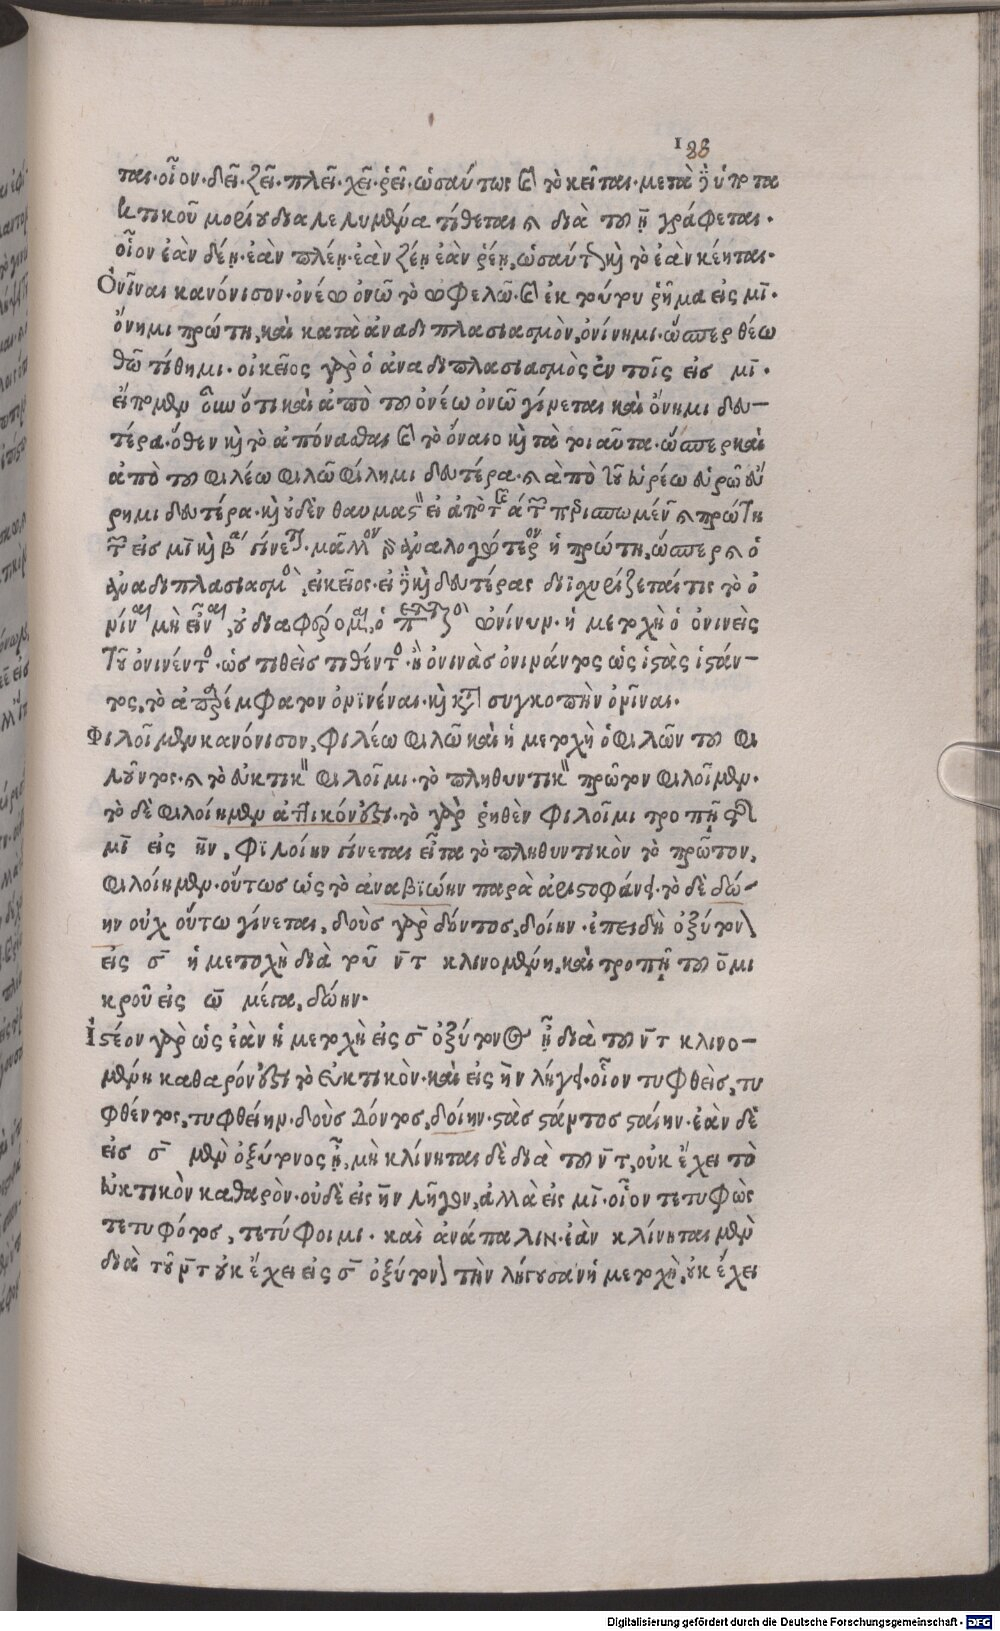 188
ται· οἷον· δεῖ· ζεῖ· πλεῖ· χεῖ· ῥεῖ· ὡσαύτως καὶ τὸ κεῖται· μετὰ δὲ ὑποτα
κτικοῦ μορίου διαλελυμένα τίθεται καὶ διὰ τοῦ η γράφεται·
οἷον ἐὰν δέῃ· ἐὰν πλέῃ· ἐὰν ζέῃ ἐὰν ῥέῃ, ὡσαύτως καὶ τὸ ἐὰν κέηται·
Ὀνῖναι κανόνισον· ὀνέω ὀνῶ τὸ ὠφελῶ· καὶ ἐκ τούτου ῥῆμα εἰς μι·
ὄνημι πρώτη, καὶ κατὰ ἀναδιπλασιασμὸν, ὀνίνημι· ὥσπερ θέω
θῶ τίθημι· οἰκεῖος γὰρ ὁ ἀναδιπλασιασμὸς ἐν τοῖς εἰσ μι·
εἴπομεν οὖν ὅτι καὶ ἀπὸ τοῦ ὀνέω ὀνῶ γίνεται καὶ ὄνημι δευ—
τέρα· ὅθεν καὶ τὸ ἀπόνασθαι καὶ τὸ ὄναιο καὶ τὰ τοιαῦτα· ὥσπερ καὶ
ἀπὸ τοῦ φιλέω φιλῶ φίλημι δευτέρα· καὶ ἀπὸ τοῦ εὑρέω εὑρῶ εὕ
ρημι δευτέρα· καὶ οὐδὲν θαυμαστὸν εἰ ἀπὸ τῆς περισπωμένης καὶ πρώτη
τῶν εἰσ μι καὶ β γίνεται· μᾶλλον δὲ ἀναλογώτερον ἡ πρώτη, ὥσπερ καὶ ὁ
ἀναδιπλασιασμὸς, εἰκεῖος· εἰ δὲ καὶ δευτέρας διϊσχυρίζεταί τις τὸ ὀ
νίναι μὴ εἶναι, οὐ διαφέρομαι, ὁ ὠνίνυν· ἡ μετοχὴ ὁ ὀνινεὶς
τοῦ ὀνινέντος· ὡς τιθεὶς τιθέντος· ἢ ὀνινὰς ὀνινάντος ὡς ἱστὰς ἱστάν—
τος, τὸ ἀπαρέμφατον ὀνϊνέναι· καὶ κατὰ συγκοπὴν ὀνῖναι.
Φιλοῖμεν κανόνισον, φιλέω φιλῶ καὶ ἡ μετοχὴ ὁ φιλῶν τοῦ φι
λοῦντος· καὶ τὸ εὐκτικὸν φιλοῖμι· τὸ πληθυντικὸν πρῶτον φιλοῖμεν·
τὸ δὲ φιλοίημεν ἀττικόν ἐστι· τὸ γὰρ ῥηθὲν φιλοῖμι τροπῇ τῆς
μι εἰς ην, φϊλοίην γίνεται εἶτα τὸ πληθυντικὸν τὸ πρῶτον,
φιλοίημεν· οὕτωσ ὡς τὸ ἀναβϊώην παρὰ ἀριστοφάνει· τὸ δὲ δώ—
ην οὐχ οὕτω γίνεται, δοὺσ γὰρ δόντοσ, δοίην· ἐπειδὴ ὀξύτονος
εἰς σ ἡ μετοχὴ διὰ τοῦ ντ κλινομένη, καὶ τροπῇ τοῦ ο μι
κροῦ εἰς ω μέγα, δώην·
Ἰστέον γὰρ ὡς ἐὰν ἡ μετοχὴ εἰς σ ὀξύτονος ᾖ διὰ τοῦ ντ κλινο—
μένη καθαρόν ἐστι τὸ εὐκτικὸν· καὶ εἰς ην λήγει· οἷον τυφθεὶσ, τυ
φθέντος, τυφθείην· δοὺσ δόντοσ, δοίην· στὰσ στάντοσ σταίην· ἐὰν δὲ
εἰσ σ μὲν ὀξύτονος ᾖ, μὴ κλίνηται δὲ διὰ τοῦ ντ, οὐκ ἔχει τὸ
εὐκτικὸν καθαρὸν· οὐδὲ εἰς ην λῆγον, ἀλλὰ εἰς μι· οἷον τετυφὼς
τετυφότοσ, τετύφοιμι· καὶ ἀνάπαλιν· ἐὰν κλίνηται μὲν
διὰ τοῦ ντ οὐκ ἔχει εἰς σ ὀξύτονον τὴν λήγουσαν ἡ μετοχὴ, οὐκ ἔχει
Digitalisierung gefördert durch die Deutsche Forschungsgemeinschaft - DFG